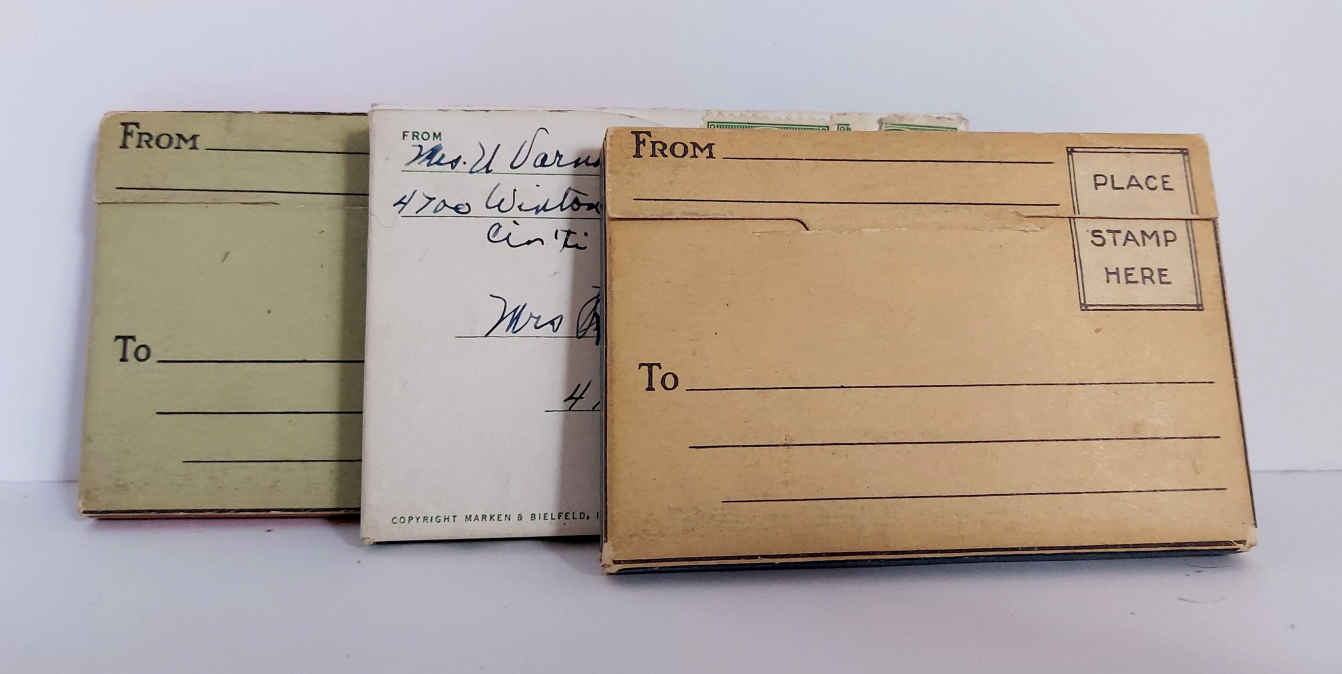 FROM
TO
FROM
Mrs. U Varn
4700 Winton
Cin'ti
Mrs
4
COPYRIGHT MARKEN & BIELFELD, I
FROM
PLACE
STAMP
HERE
TO